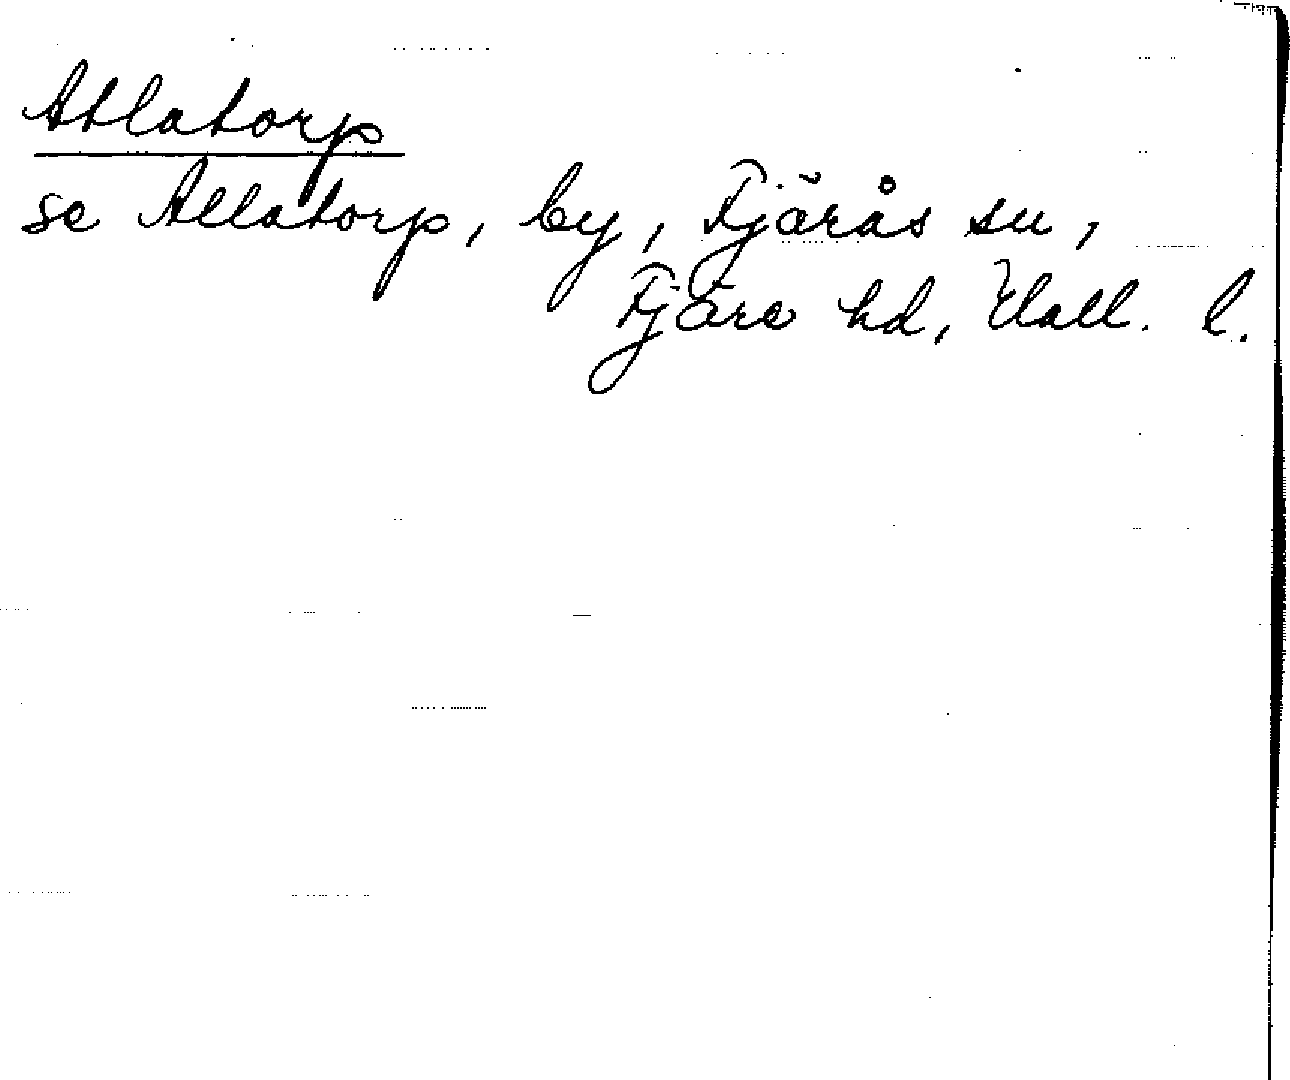 Atlatorp
se Allatorp, by, Fjärås sn,
Fjäre hd, Hall. l.